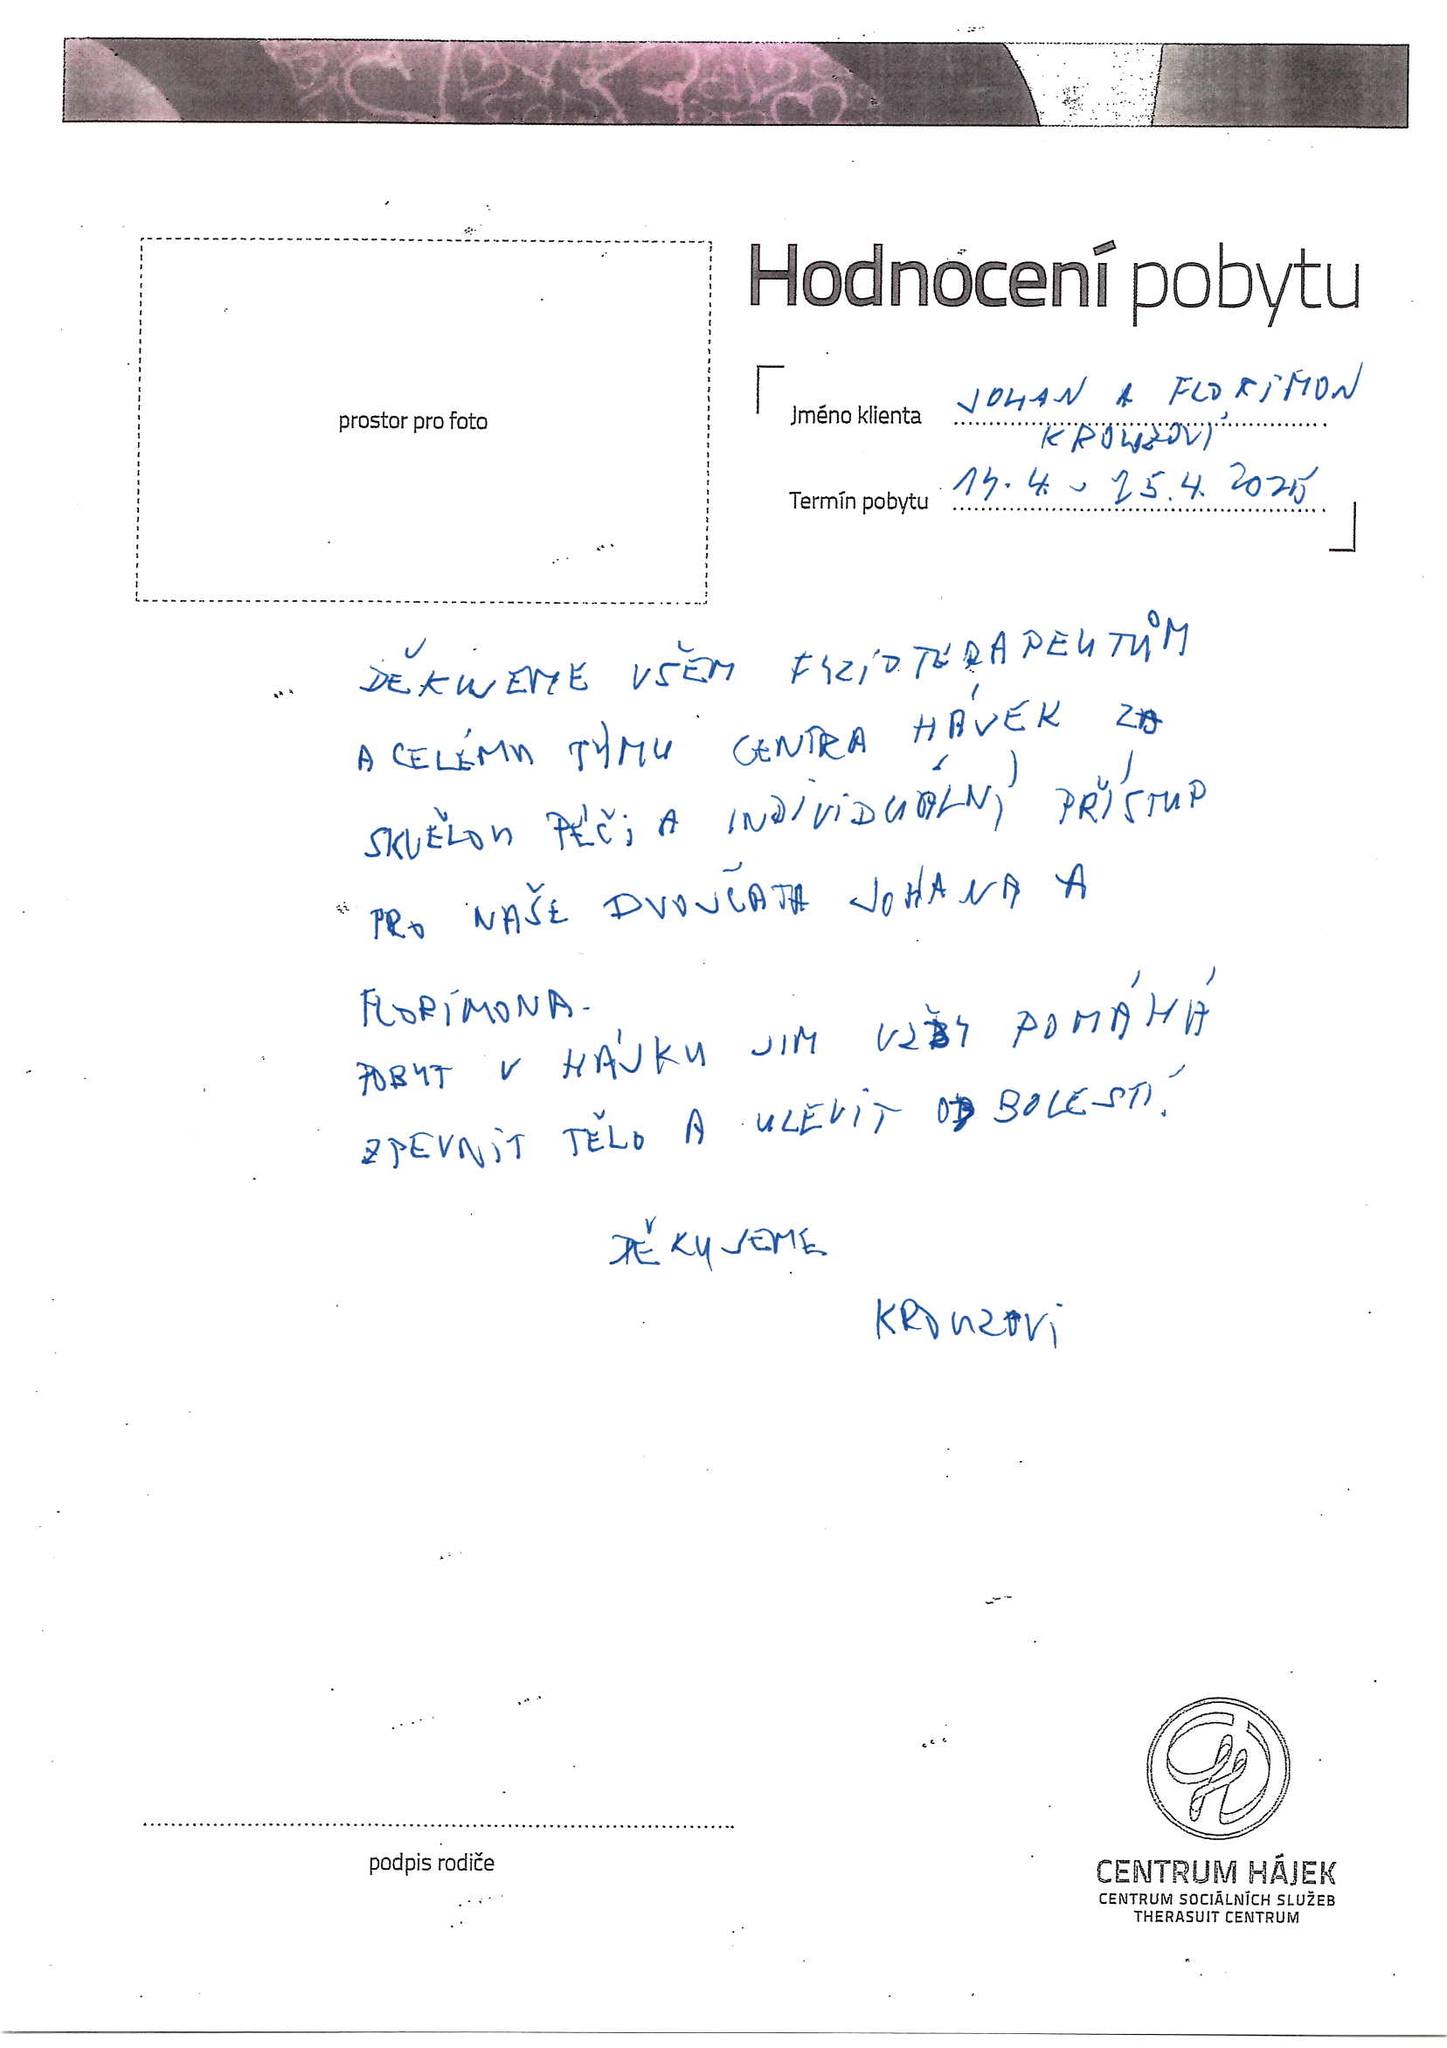 Hodnocení pobytu
prostor pro foto
Jméno klienta JOHAN A FLORIMON
KROUZOVI
Termín pobytu 14.4. - 25.4. 2025
DĚKUJEME VŠEM FYZIOTERAPEUTŮM
A CELÉMU TÝMU CENTRA HÁJEK ZA
SKVĚLOU PÉČI A INDIVIDUÁLNÍ PŘÍSTUP
PRO NAŠE DVOJČATA JOHANA A
FLORIMONA.
POBYT V HÁJKU JIM VŽDY POMÁHÁ
ZPEVNIT TĚLO A ULEVIT OD BOLESTÍ.
DĚKUJEME
KROUZOVI
podpis rodiče
CENTRUM HÁJEK
CENTRUM SOCIÁLNÍCH SLUŽEB
THERASUIT CENTRUM